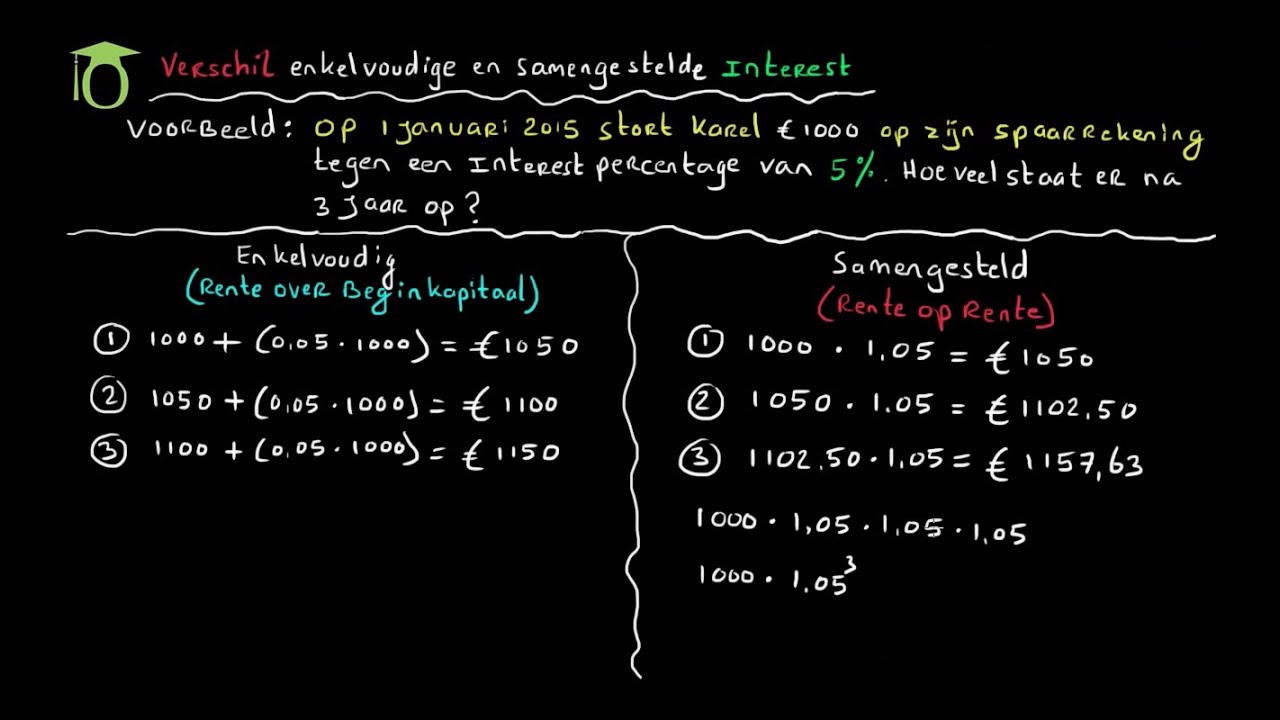 Verschil enkelvoudige en samengestelde Interest
Voorbeeld: Op 1 januari 2015 stort Karel € 1000 op zijn spaarrekening
tegen een Interest percentage van 5%. Hoeveel staat er na
3 jaar op?
Enkelvoudig
(Rente over Beginkapitaal)
① 1000 + (0,05 · 1000) = € 1050
② 1050 + (0,05 · 1000) = € 1100
③ 1100 + (0,05 · 1000) = € 1150
Samengesteld
(Rente op Rente)
① 1000 · 1,05 = € 1050
② 1050 · 1.05 = € 1102,50
③ 1102,50 · 1,05 = € 1157,63
1000 · 1,05 · 1,05 · 1,05
1000 · 1,05³